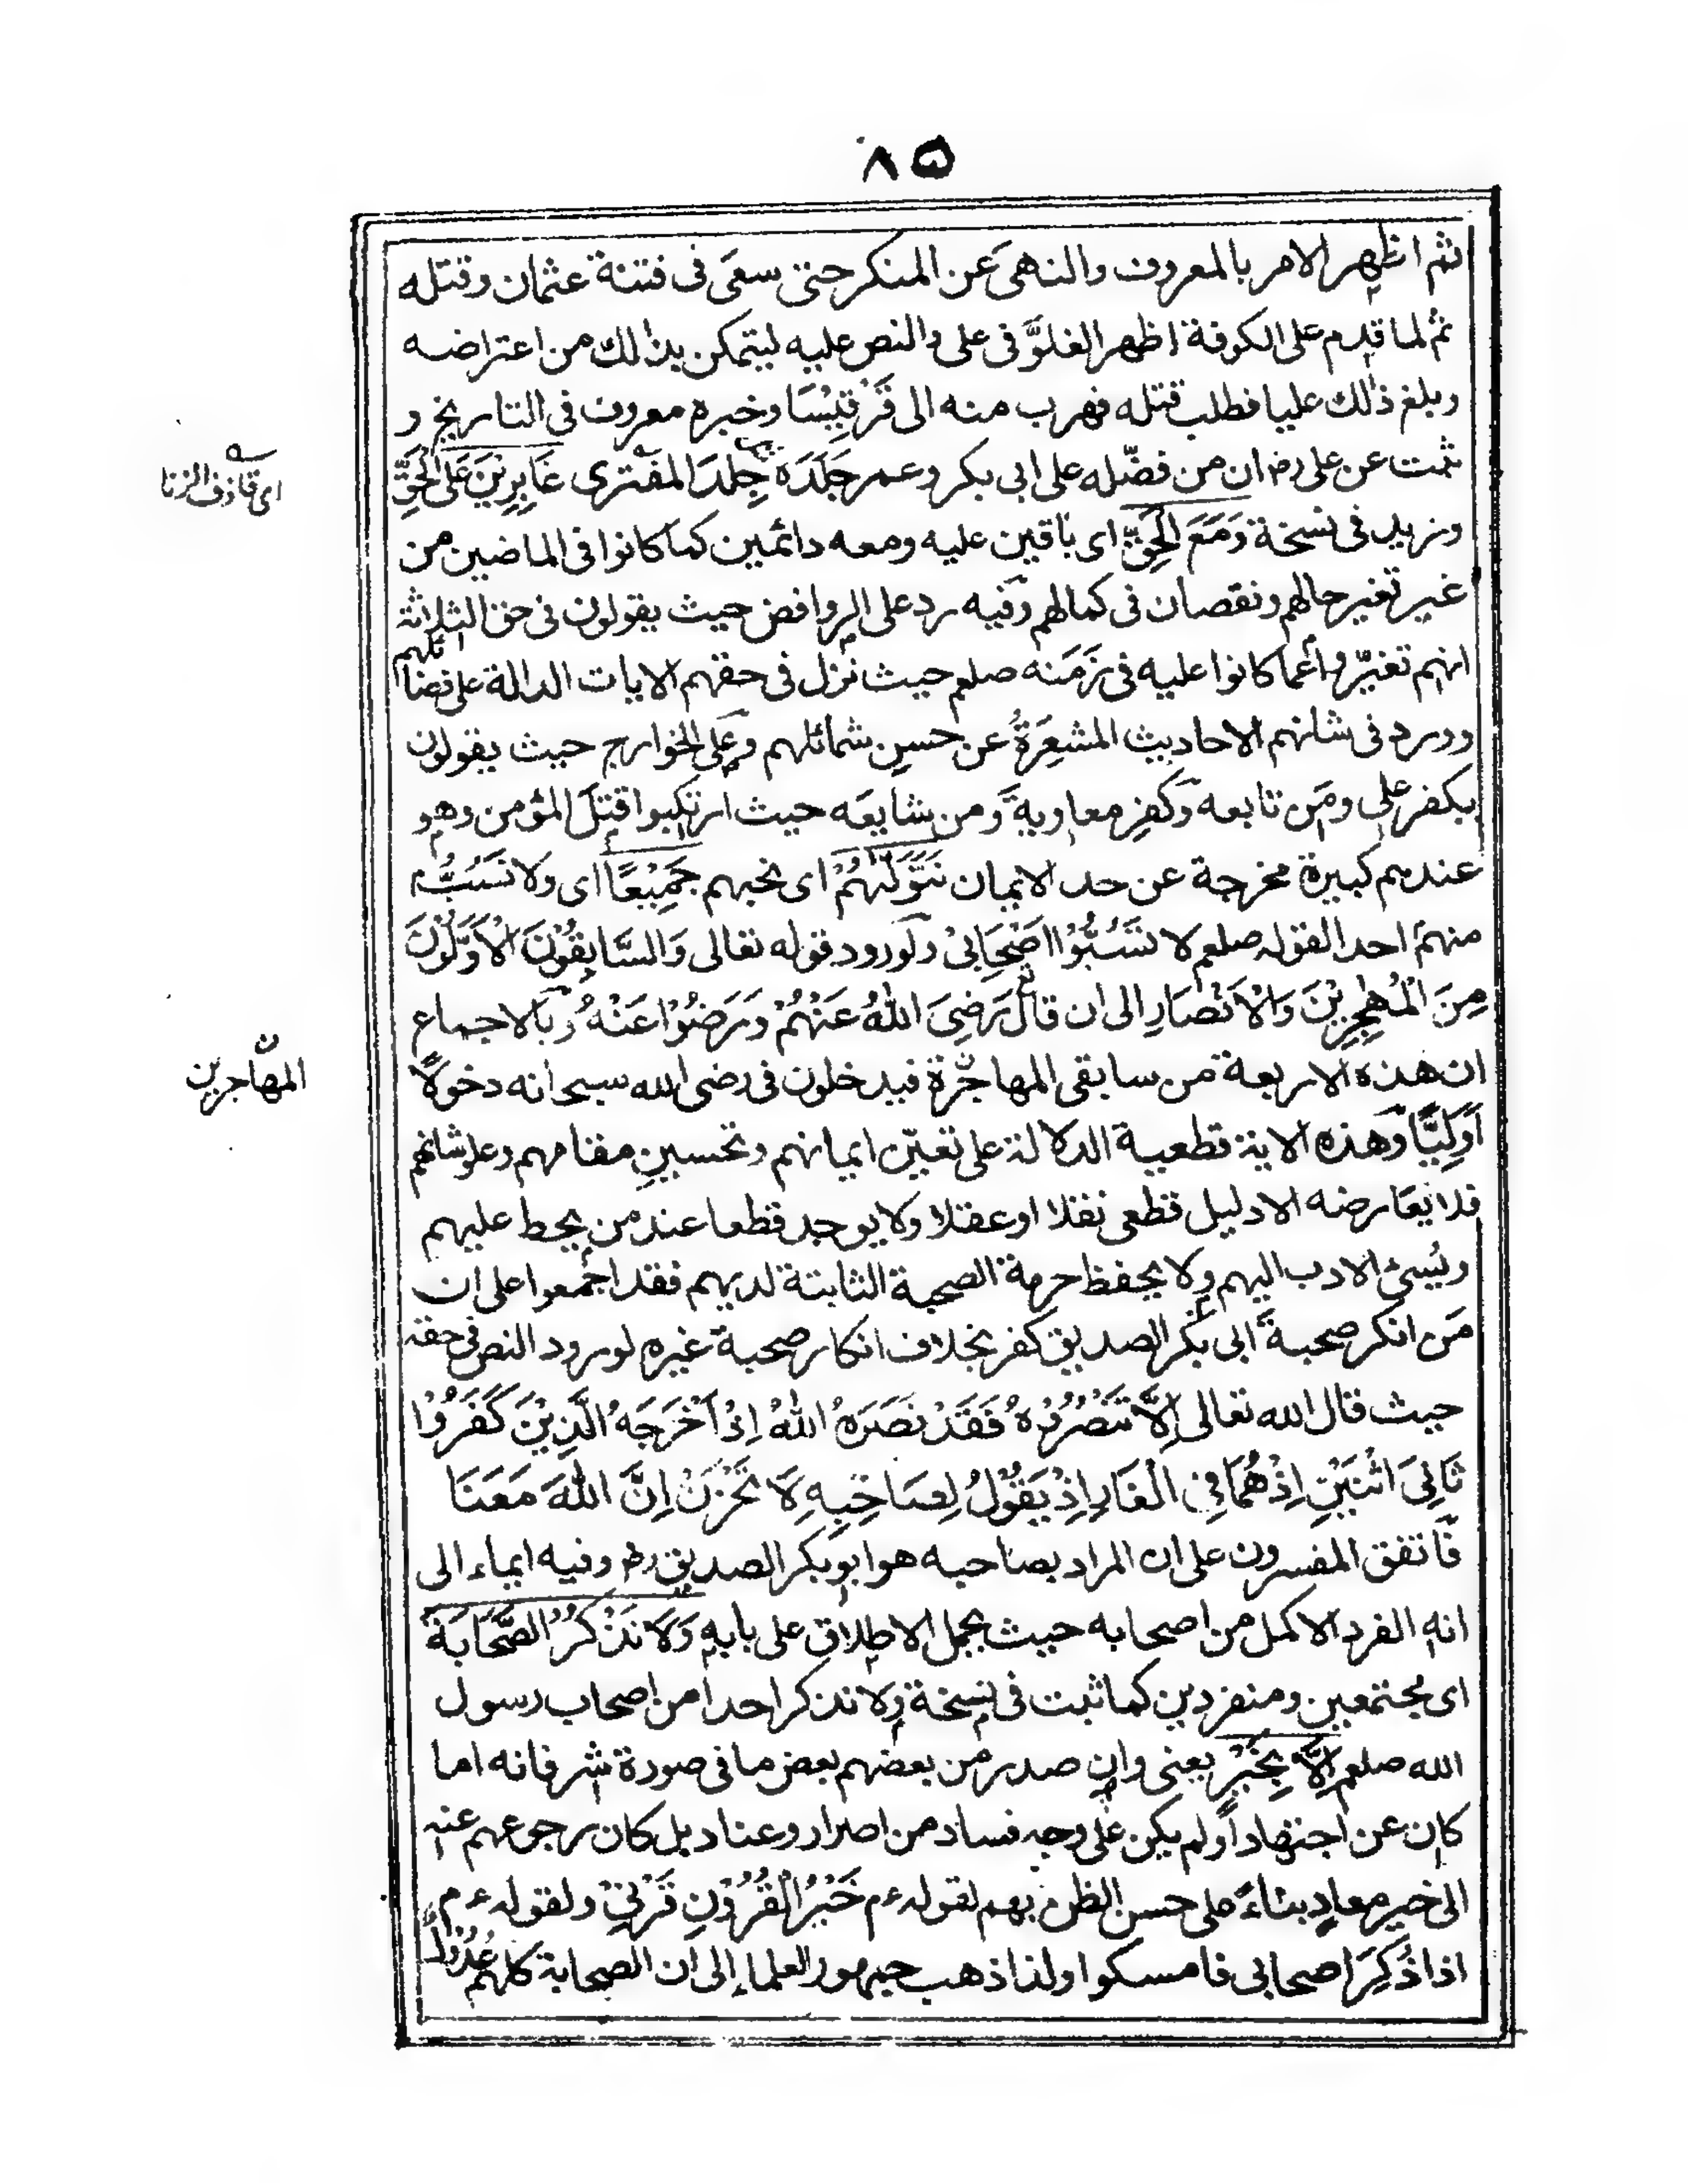 ٨٥
ثم اظهر الامر بالمعروف والنهى عن المنكر حتى سعى فى فتنة عثمان وقتله
ثم لما قدم على الكوفة اظهر الغلوّ فى على والنص عليه ليتمكن بذالك من اعتراضه
وبلغ ذلك عليا فطلب قتله فهرب منه الى قَرْقِيْسَا وخبره معروف فى التاريخ و
ثبت عن على رضـ ان من فضّله على ابى بكر وعمر جَلَدَه جِلدَ المفترى غَابِرِيْنَ عَلَى الْحَقِّ
اى قاذف الزنا
ونريد فى نسخة وَمَعَ الْحَقِّ اى باقين عليه ومعه دائمين كما كانوا فى الماضين من
غير تغير حالهم ونقصان فى كمالهم وفيه رد على الروافض حيث يقولون فى حق الثلاثة
انهم تغيّروا عما كانوا عليه فى زَمَنه صلعم حيث نزل فى حقهم الايات الدالة على فضائلهم
وورد فى شانهم الاحاديث المشعِرَةُ عن حسنِ شمائلهم وعلى الخوارج حيث يقولون
بكفر على ومَن تابعه وكفرِ معاوية ومن شايعَه حيث ارتكبوا قتلَ المؤمن وهو
عندهم كبيرة مخرجة عن حد الايمان نَتَوَلّٰهُمْ اى نحبهم جَمِيْعًا اى ولا نَسُبُّ
منهم احدا لقوله صلعم لا تَسُبُّوْا اَصْحَابِىْ ولورود قوله تعالى وَالسَّابِقُوْنَ الْاَوَّلُوْنَ
مِنَ الْمُهٰجِرِيْنَ وَالْاَنْصَارِ الى ان قال رَضِىَ اللهُ عَنْهُمْ وَرَضُوْا عَنْهُ وبالاجماع
ان هذه الاربعة من سابقى المهاجرة فيدخلون فى رضى الله سبحانه دخولًا
المهاجرين ن
اَوَّلِيًّا وهذه الاية قطعية الدلالة على تعيّن ايمانهم وتحسينِ مقامهم وعلو شانهم
فلا يعارضه الا دليل قطعى نقلا او عقلا ولا يوجد قطعا عند من يحط عليهم
ويُسئ الادب اليهم ولا يحفظ حرمة الصحبة الثابتة لديهم فقد اجمعوا على ان
مَن انكر صحبةَ ابى بكر الصديق كفر بخلاف انكار صحبة غيره لورود النص فى حقه
حيث قال الله تعالى اِلَّا تَنْصُرُوْهُ فَقَدْ نَصَرَهُ اللهُ اِذْ اَخْرَجَهُ الَّذِيْنَ كَفَرُوْا
ثَانِىَ اثْنَيْنِ اِذْ هُمَا فِى الْغَارِ اِذْ يَقُوْلُ لِصَاحِبِهِ لَا تَحْزَنْ اِنَّ اللهَ مَعَنَا
فاتفق المفسرون على ان المراد بصاحبه هو ابو بكر الصديق رضـ وفيه ايماء الى
انه الفرد الاكمل من اصحابه حيث يحمل الاطلاق على بابه وَلَا نَذْكُرُ الصَّحَابَةَ
اى مجتمعين ومنفردين كما ثبت فى نسخة ولا نذكر احدا من اصحاب رسول
الله صلعم اِلَّا بِخَيْرٍ يعنى وان صدر من بعضهم بعض ما فى صورة شر فانه اما
كان عن اجتهاد اولم يكن على وجه فساد من اصرار وعناد بل كان رجوعهم عنه
الى خير معادٍ بناءً على حسن الظن بهم لقوله ءم خَيْرُ الْقُرُوْنِ قَرْنِىْ ولقوله ءم
اذا ذُكِرَ اصحابى فامسكوا ولذا ذهب جمهور العلماء الى ان الصحابة كلهم عُدُوْلٌ